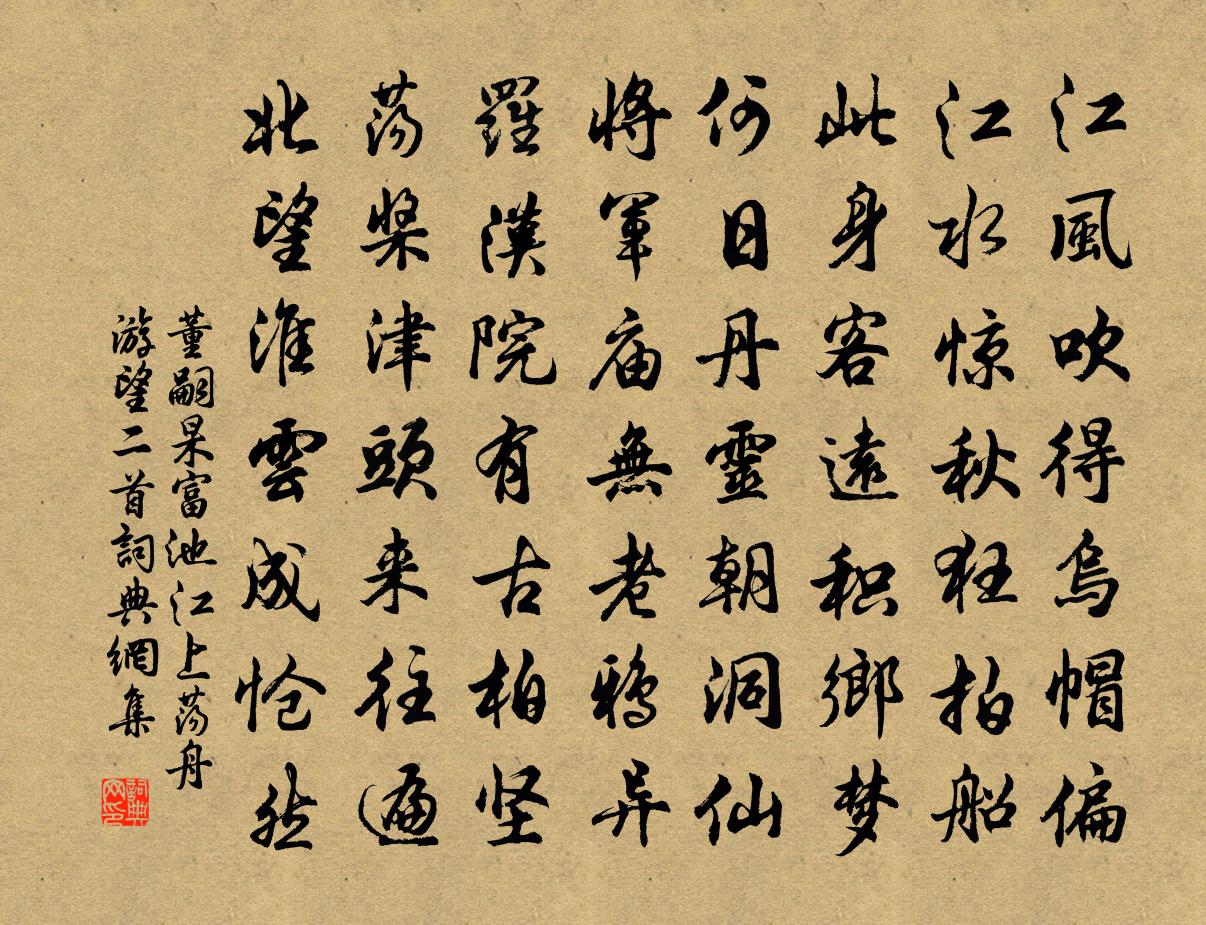 江風吹得烏帽偏
江水惊秋狂拍船
此身客遠积鄉梦
何日丹靈朝洞仙
將軍庙無老鴉异
羅漢院有古柏坚
荡槳津頭来往遍
北望淮雲成怆然
董嗣杲富池江上荡舟
游望二首詞典網集
詞典网印